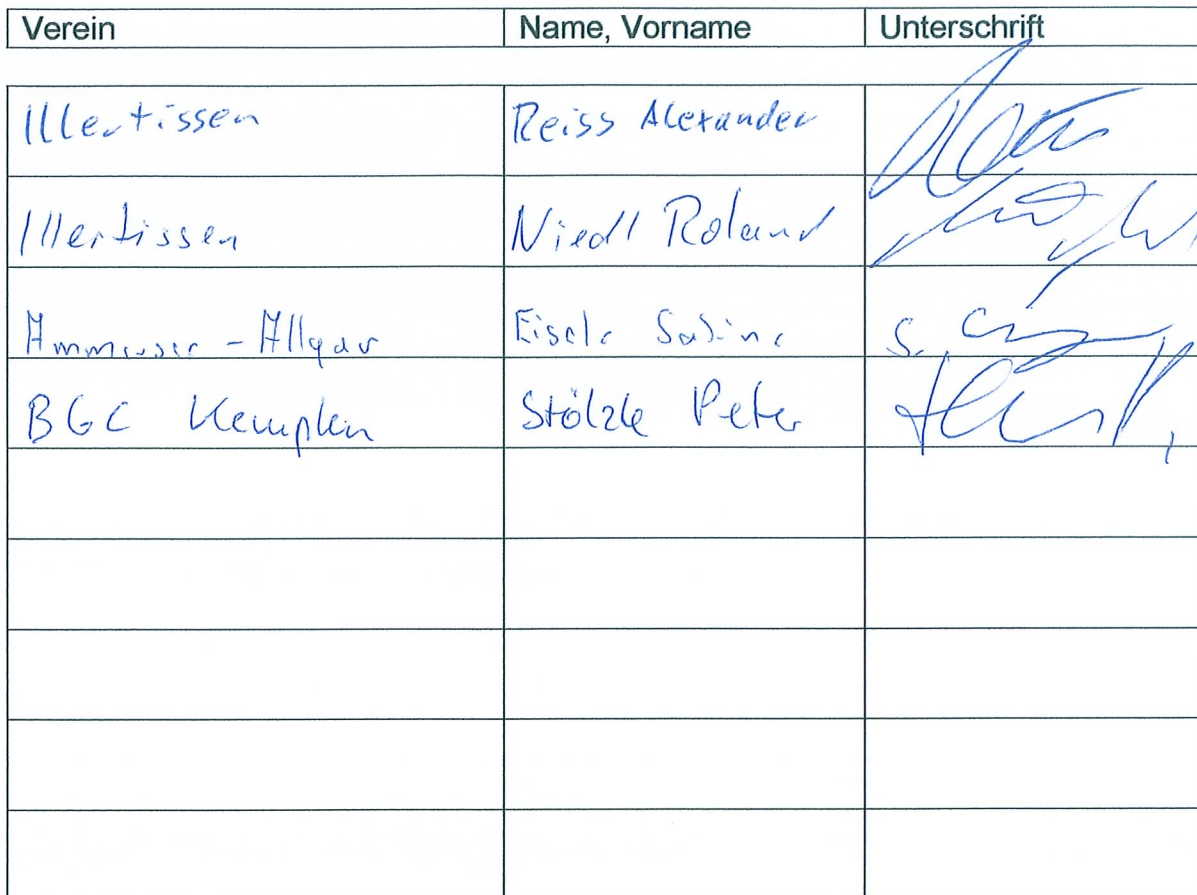 Verein Name, Vorname Unterschrift
Illertissen Reiss Alexander
Illertissen Niedl Roland
Ammersee - Allgäu Eisele Sabine
BGC Kempten Stölzle Peter